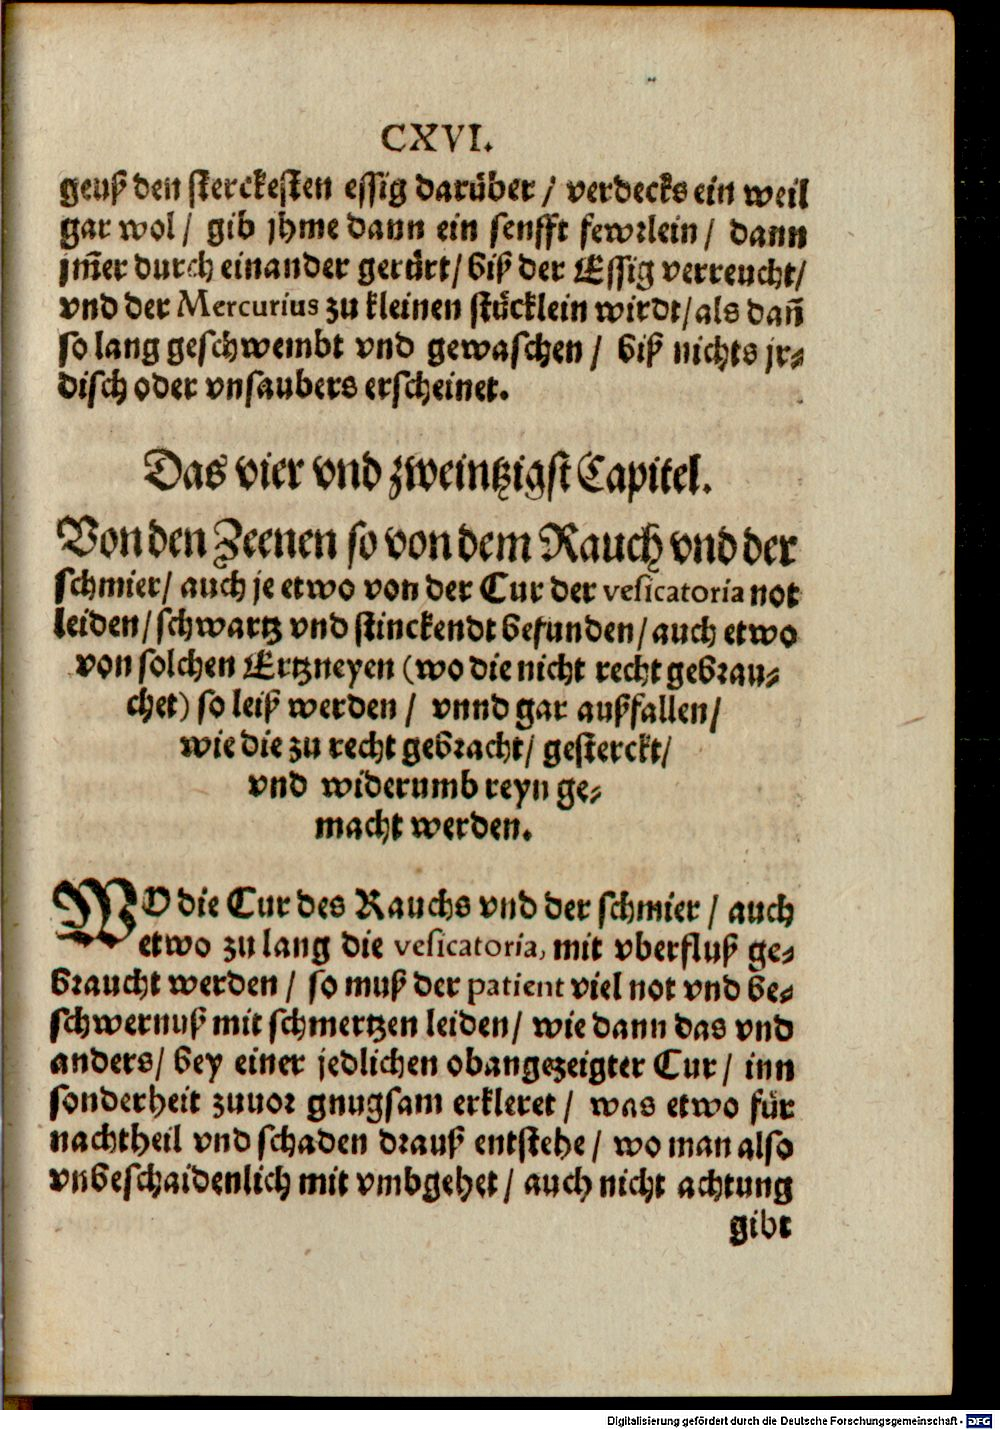 CXVI.
geuß den sterckesten essig darüber / verdecks ein weil
gar wol / gib jhme dann ein senfft fewrlein / dann
jm̃er durch einander gerürt / biß der Essig verreucht /
vnd der Mercurius zu kleinen stücklein wirdt / als dañ
so lang geschwembt vnd gewaschen / biß nichts jr-
disch oder vnsaubers erscheinet.
Das vier vnd zweintzigst Capitel.
Von den Zeenen so von dem Rauch vnd der
schmier / auch je etwo von der Cur der vesicatoria not
leiden / schwartz vnd stinckendt befunden / auch etwo
von solchen Ertzneyen (wo die nicht recht gebrau-
chet) so leiß werden / vnnd gar außfallen /
wie die zu recht gebracht / gesterckt /
vnd widerumb reyn ge-
macht werden.
WO die Cur des Rauchs vnd der schmier / auch
etwo zu lang die vesicatoria, mit vberfluß ge-
braucht werden / so muß der patient viel not vnd be-
schwernuß mit schmertzen leiden / wie dann das vnd
anders / bey einer jedlichen obangezeigter Cur / inn
sonderheit zuuor gnugsam erkleret / was etwo für
nachtheil vnd schaden drauß entstehe / wo man also
vnbeschaidenlich mit vmbgehet / auch nicht achtung
gibt
Digitalisierung gefördert durch die Deutsche Forschungsgemeinschaft - DFG